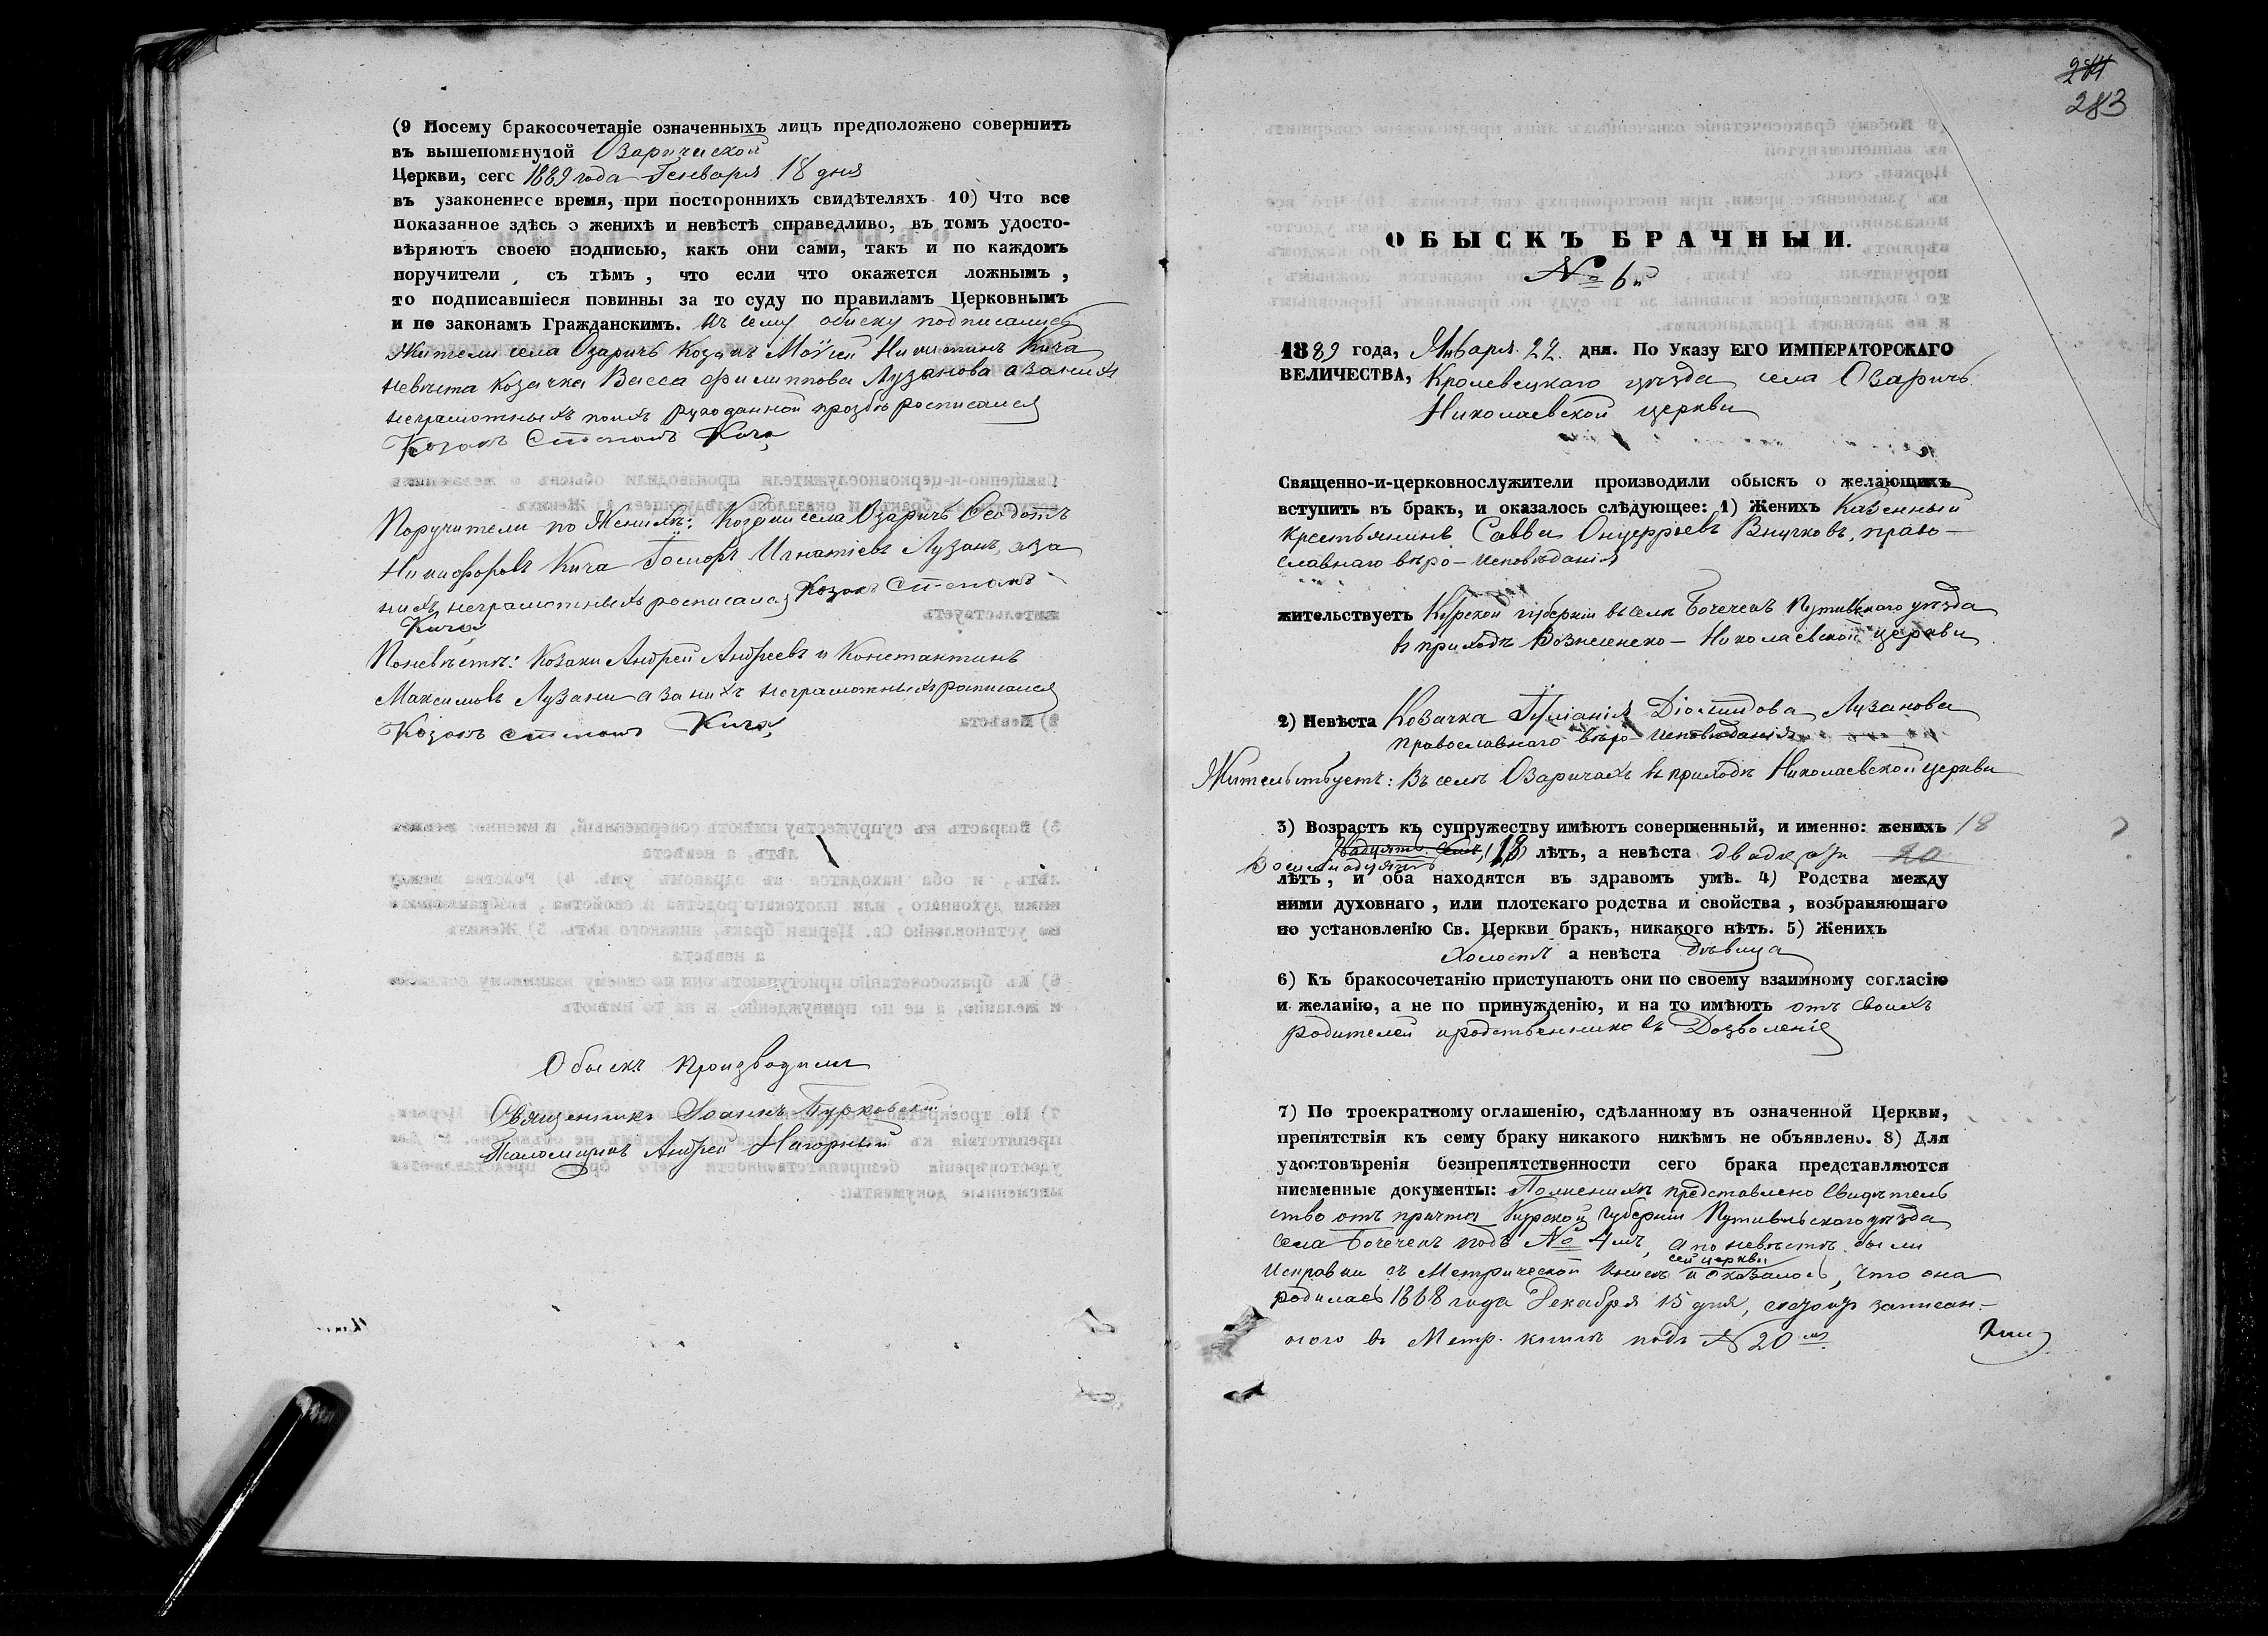 (9 Посему бракосочетаніе означенныхъ лицъ предположено совершить
въ вышепомянутой Озаричской
Церкви, сего 1889 года Генваря 18 дня
въ узаконенное время, при постороннихъ свидѣтеляхъ 10) Что все
показанное здѣсь о женихѣ и невѣстѣ справедливо, въ томъ удосто-
вѣряютъ своею подписью, какъ они сами, такъ и по каждомъ
поручители, съ тѣмъ, что если что окажется ложнымъ,
то подписавшіеся повинны за то суду по правиламъ Церковнымъ
и по законамъ Гражданскимъ. Къ сему обыску подписались
Жители села Озаричъ Козакъ Моѵсей Никитинъ Кича
невѣста козачка Васса Филиппова Лузанова а за нихъ
неграмотныхъ по ихъ рукоданной прозбѣ росписался
Козакъ Степанъ Кича
Поручители по Женихѣ: Козаки села Озаричъ Ѳеодотъ
Никифоровъ Кича Игнатіевъ Лузанъ, а за
нихъ неграмотныхъ росписался Козакъ Степанъ
Кича
По невѣстѣ: Козаки Андрей Андреевъ и Константинъ
Максимовъ Лузани а за нихъ неграмотныхъ росписался
Козакъ Степанъ Кича
Обыскъ производили
Священникъ Іоаннъ Бурковскій
Псаломщикъ Андрей Нагорный
284
283
ОБЫСКЪ БРАЧНЫЙ.
№ 6й
1889 года, Января 22 дня. По Указу ЕГО ИМПЕРАТОРСКАГО
ВЕЛИЧЕСТВА, Кролевецкаго уѣзда села Озаричъ
Николаевской церкви
Священно-и-церковнослужители производили обыскъ о желающихъ
вступить въ бракъ, и оказалось слѣдующее: 1) Женихъ Казенный
крестьянинъ Савва Онуфріевъ Внучковъ, право-
славнаго вѣро-исповѣданія
жительствуетъ Курской губерніи въ селѣ Бочечкахъ Путивльскаго уѣзда
въ приходѣ Вознесенско-Николаевской церкви
2) Невѣста Козачка Іуліанія Діомидова Лузанова
православнаго вѣро-исповѣданія
Жительствуетъ: Въ селѣ Озаричахъ въ приходѣ Николаевской церкви
3) Возрастъ къ супружеству имѣютъ совершенный, и именно: женихъ 18
восемнадцять (18) лѣтъ, а невѣста двадцать 20
лѣтъ, и оба находятся въ здравомъ умѣ. 4) Родства между
ними духовнаго, или плотскаго родства и свойства, возбраняющаго
по установленію Св. Церкви бракъ, никакого нѣтъ. 5) Женихъ
холостъ а невѣста дѣвица
6) Къ бракосочетанію приступаютъ они по своему взаимному согласію
и желанію, а не по принужденію, и на то имѣютъ отъ своихъ
родителей и родственниковъ дозволеніе
7) По троекратному оглашенію, сдѣланному въ означенной Церкви,
препятствія къ сему браку никакого никѣмъ не объявлено. 8) Для
удостовѣренія безпрепятственности сего брака представляются
писменные документы: По женихѣ представлено свидѣтель
ство отъ причта Курской губерніи Путивльскаго уѣзда
села Бочечекъ подъ № 4мъ, а по невѣстѣ были
сей церкви
исправки въ Метрической книгѣ и оказалось, что она
родилась 1868 года Декабря 15 дня, записан-
ого въ Метр. книгѣ подъ № 20мъ.